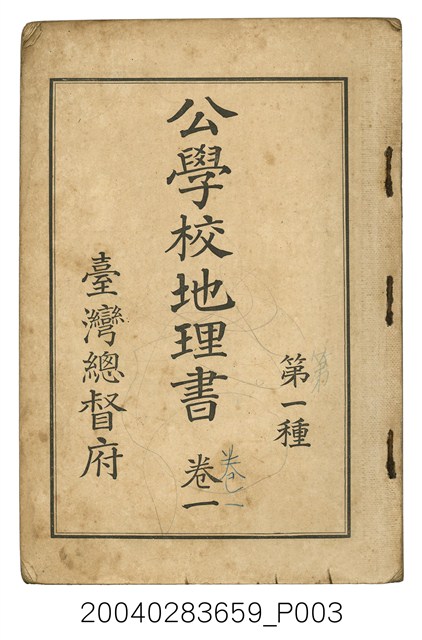 第一種
第
公學校地理書 卷一
卷一
臺灣總督府
20040283659_P003